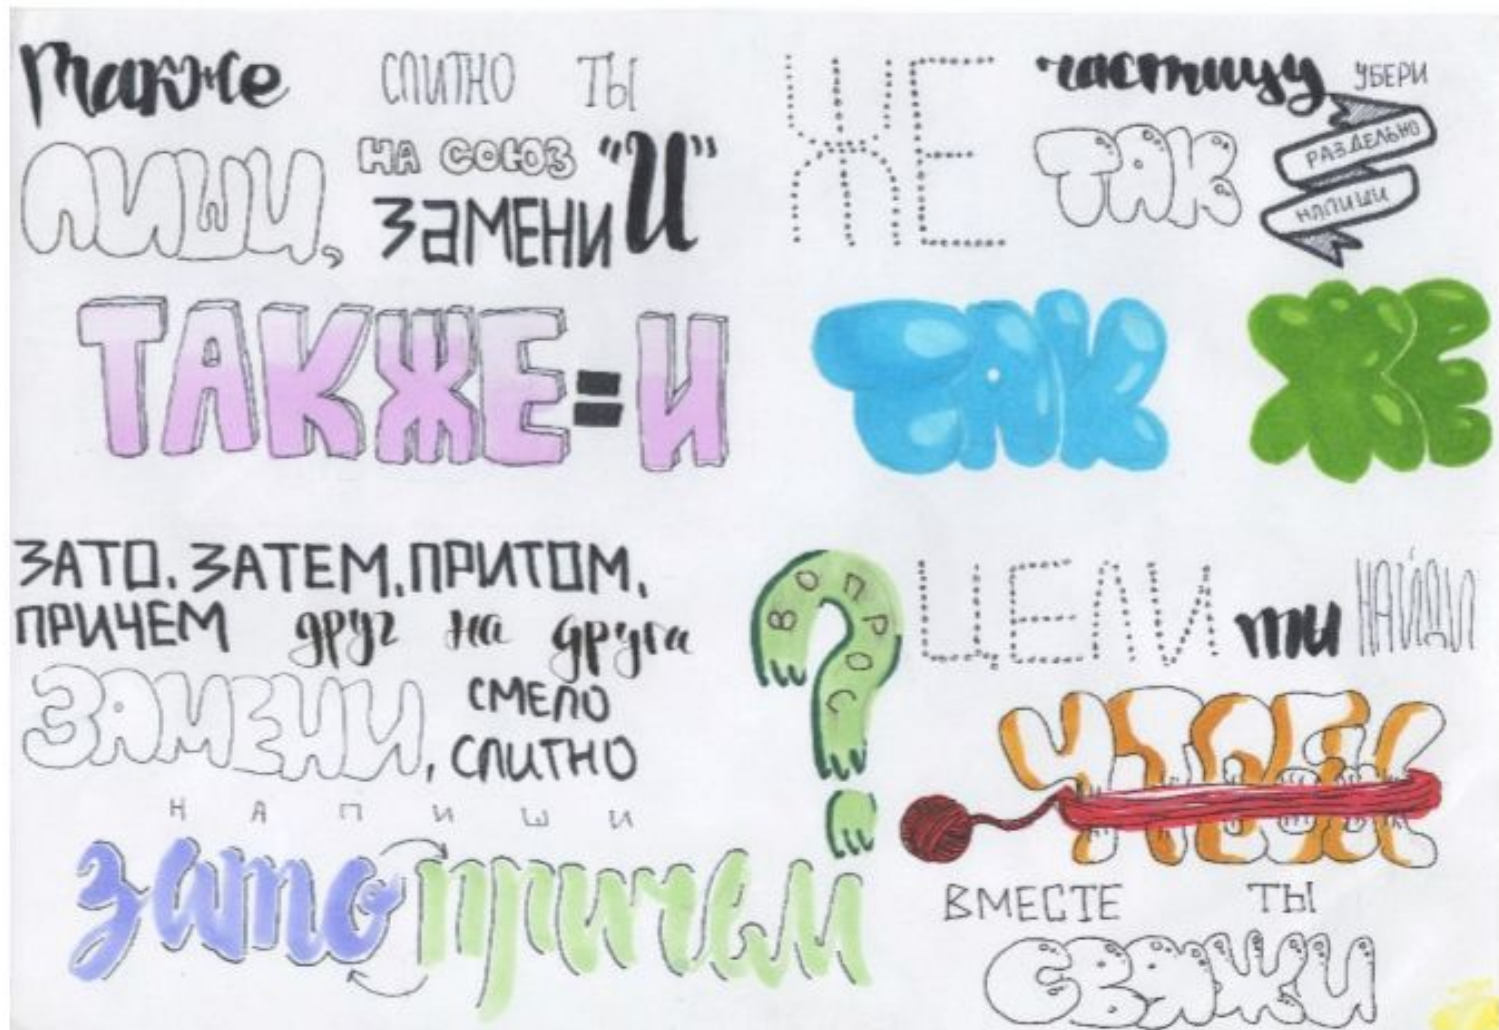 также слитно ты
пиши, на союз "и"
замени
ТАКЖЕ=И
ЖЕ частицу убери
ТАК РАЗДЕЛЬНО
НАПИШИ
ТАК ЖЕ
ЗАТО, ЗАТЕМ, ПРИТОМ,
ПРИЧЕМ друг на друга
ЗАМЕНИ, СМЕЛО
СЛИТНО
НАПИШИ
зато причем
ВОПРОС
ЦЕЛИ ты НАЙДИ
ЧТОБЫ
ВМЕСТЕ ТЫ
СВЯЖИ